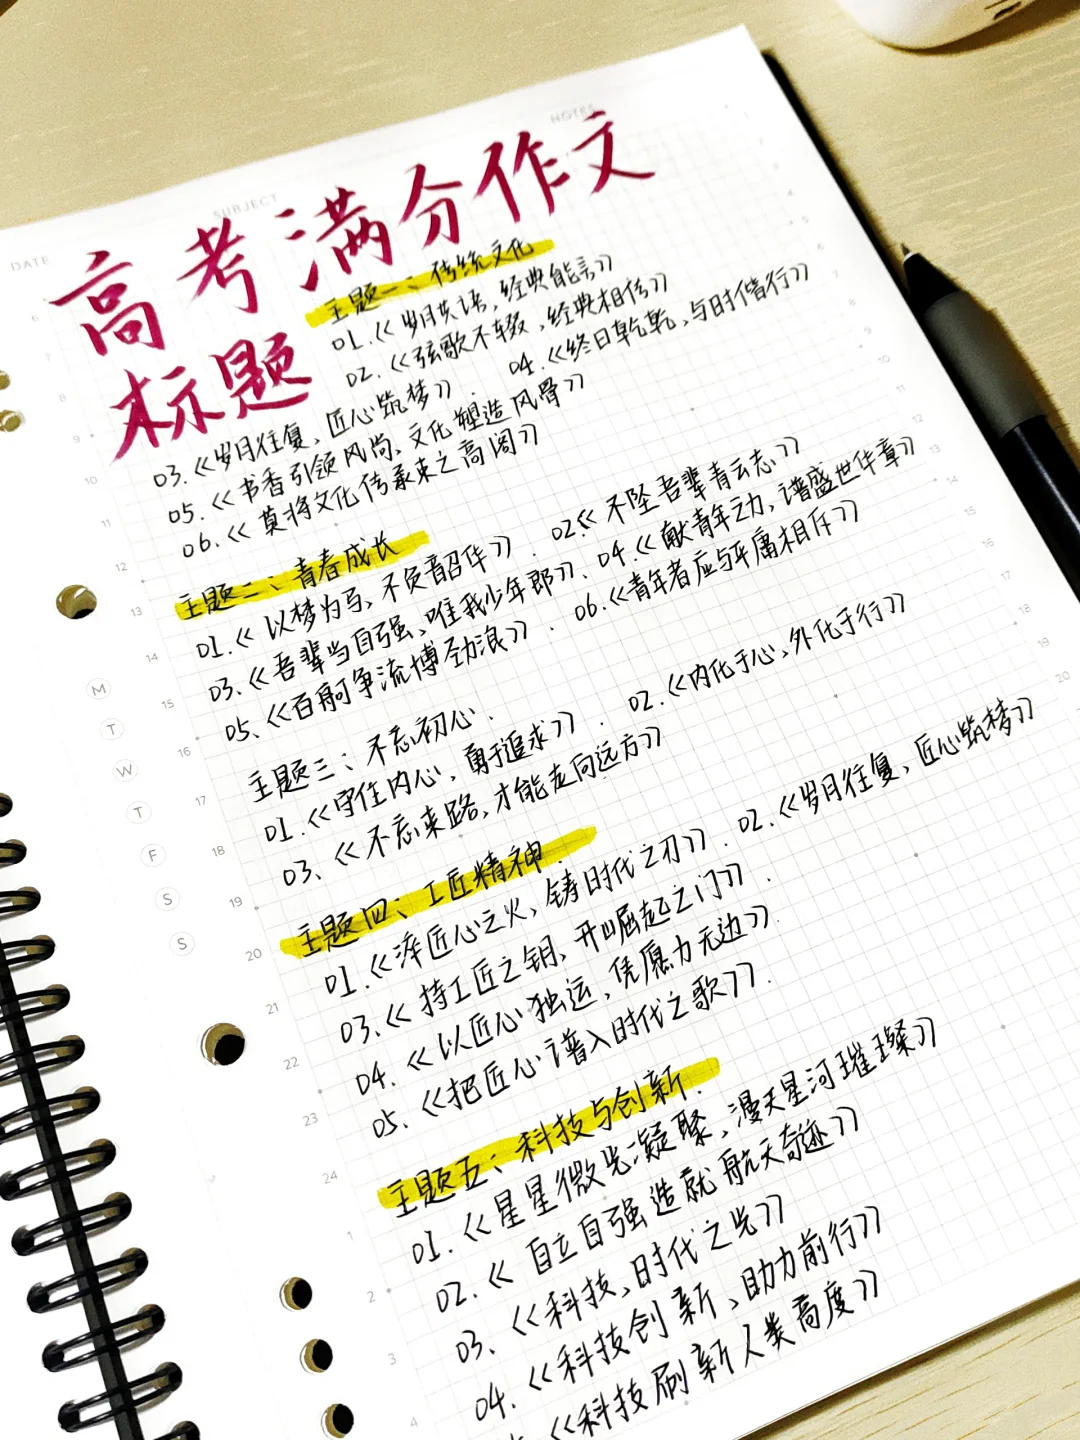 DATE
SUBJECT
NOTES
高考满分作文
标题
主题一：传统文化
01.《岁月共语，经典能言》
02.《弦歌不辍，经典相传》
03.《岁月往复，匠心筑梦》. 04.《终日乾乾，与时偕行》
05.《书香引领风尚，文化塑造风骨》
06.《莫将文化传承束之高阁》
主题二：青春成长
01.《以梦为马，不负韶华》. 02.《不坠吾辈青云志》
03.《吾辈当自强，唯我少年郎》、04.《献青年之力，谱盛世华章》
05.《百舸争流博劲浪》. 06.《青年者应与平庸相斥》
主题三：不忘初心.
01.《守住内心，勇于追求》. 02.《内化于心，外化于行》
03.《不忘来路，才能走向远方》
主题四、工匠精神.
01.《淬匠心之火，铸时代之刃》. 02.《岁月往复，匠心筑梦》
03.《持工匠之钥，开崛起之门》.
04.《以匠心独运，凭愿力无边》.
05.《把匠心谱入时代之歌》.
主题五：科技与创新.
01.《星星微光凝聚，漫天星河璀璨》
02.《自立自强造就航天奇迹》
03.《科技，时代之光》
04.《科技创新，助力前行》
《科技刷新人类高度》
M
T
W
T
F
S
S
5
6
7
8
9
10
11
12
13
14
15
16
17
18
19
20
21
22
23
24
1
2
3
4